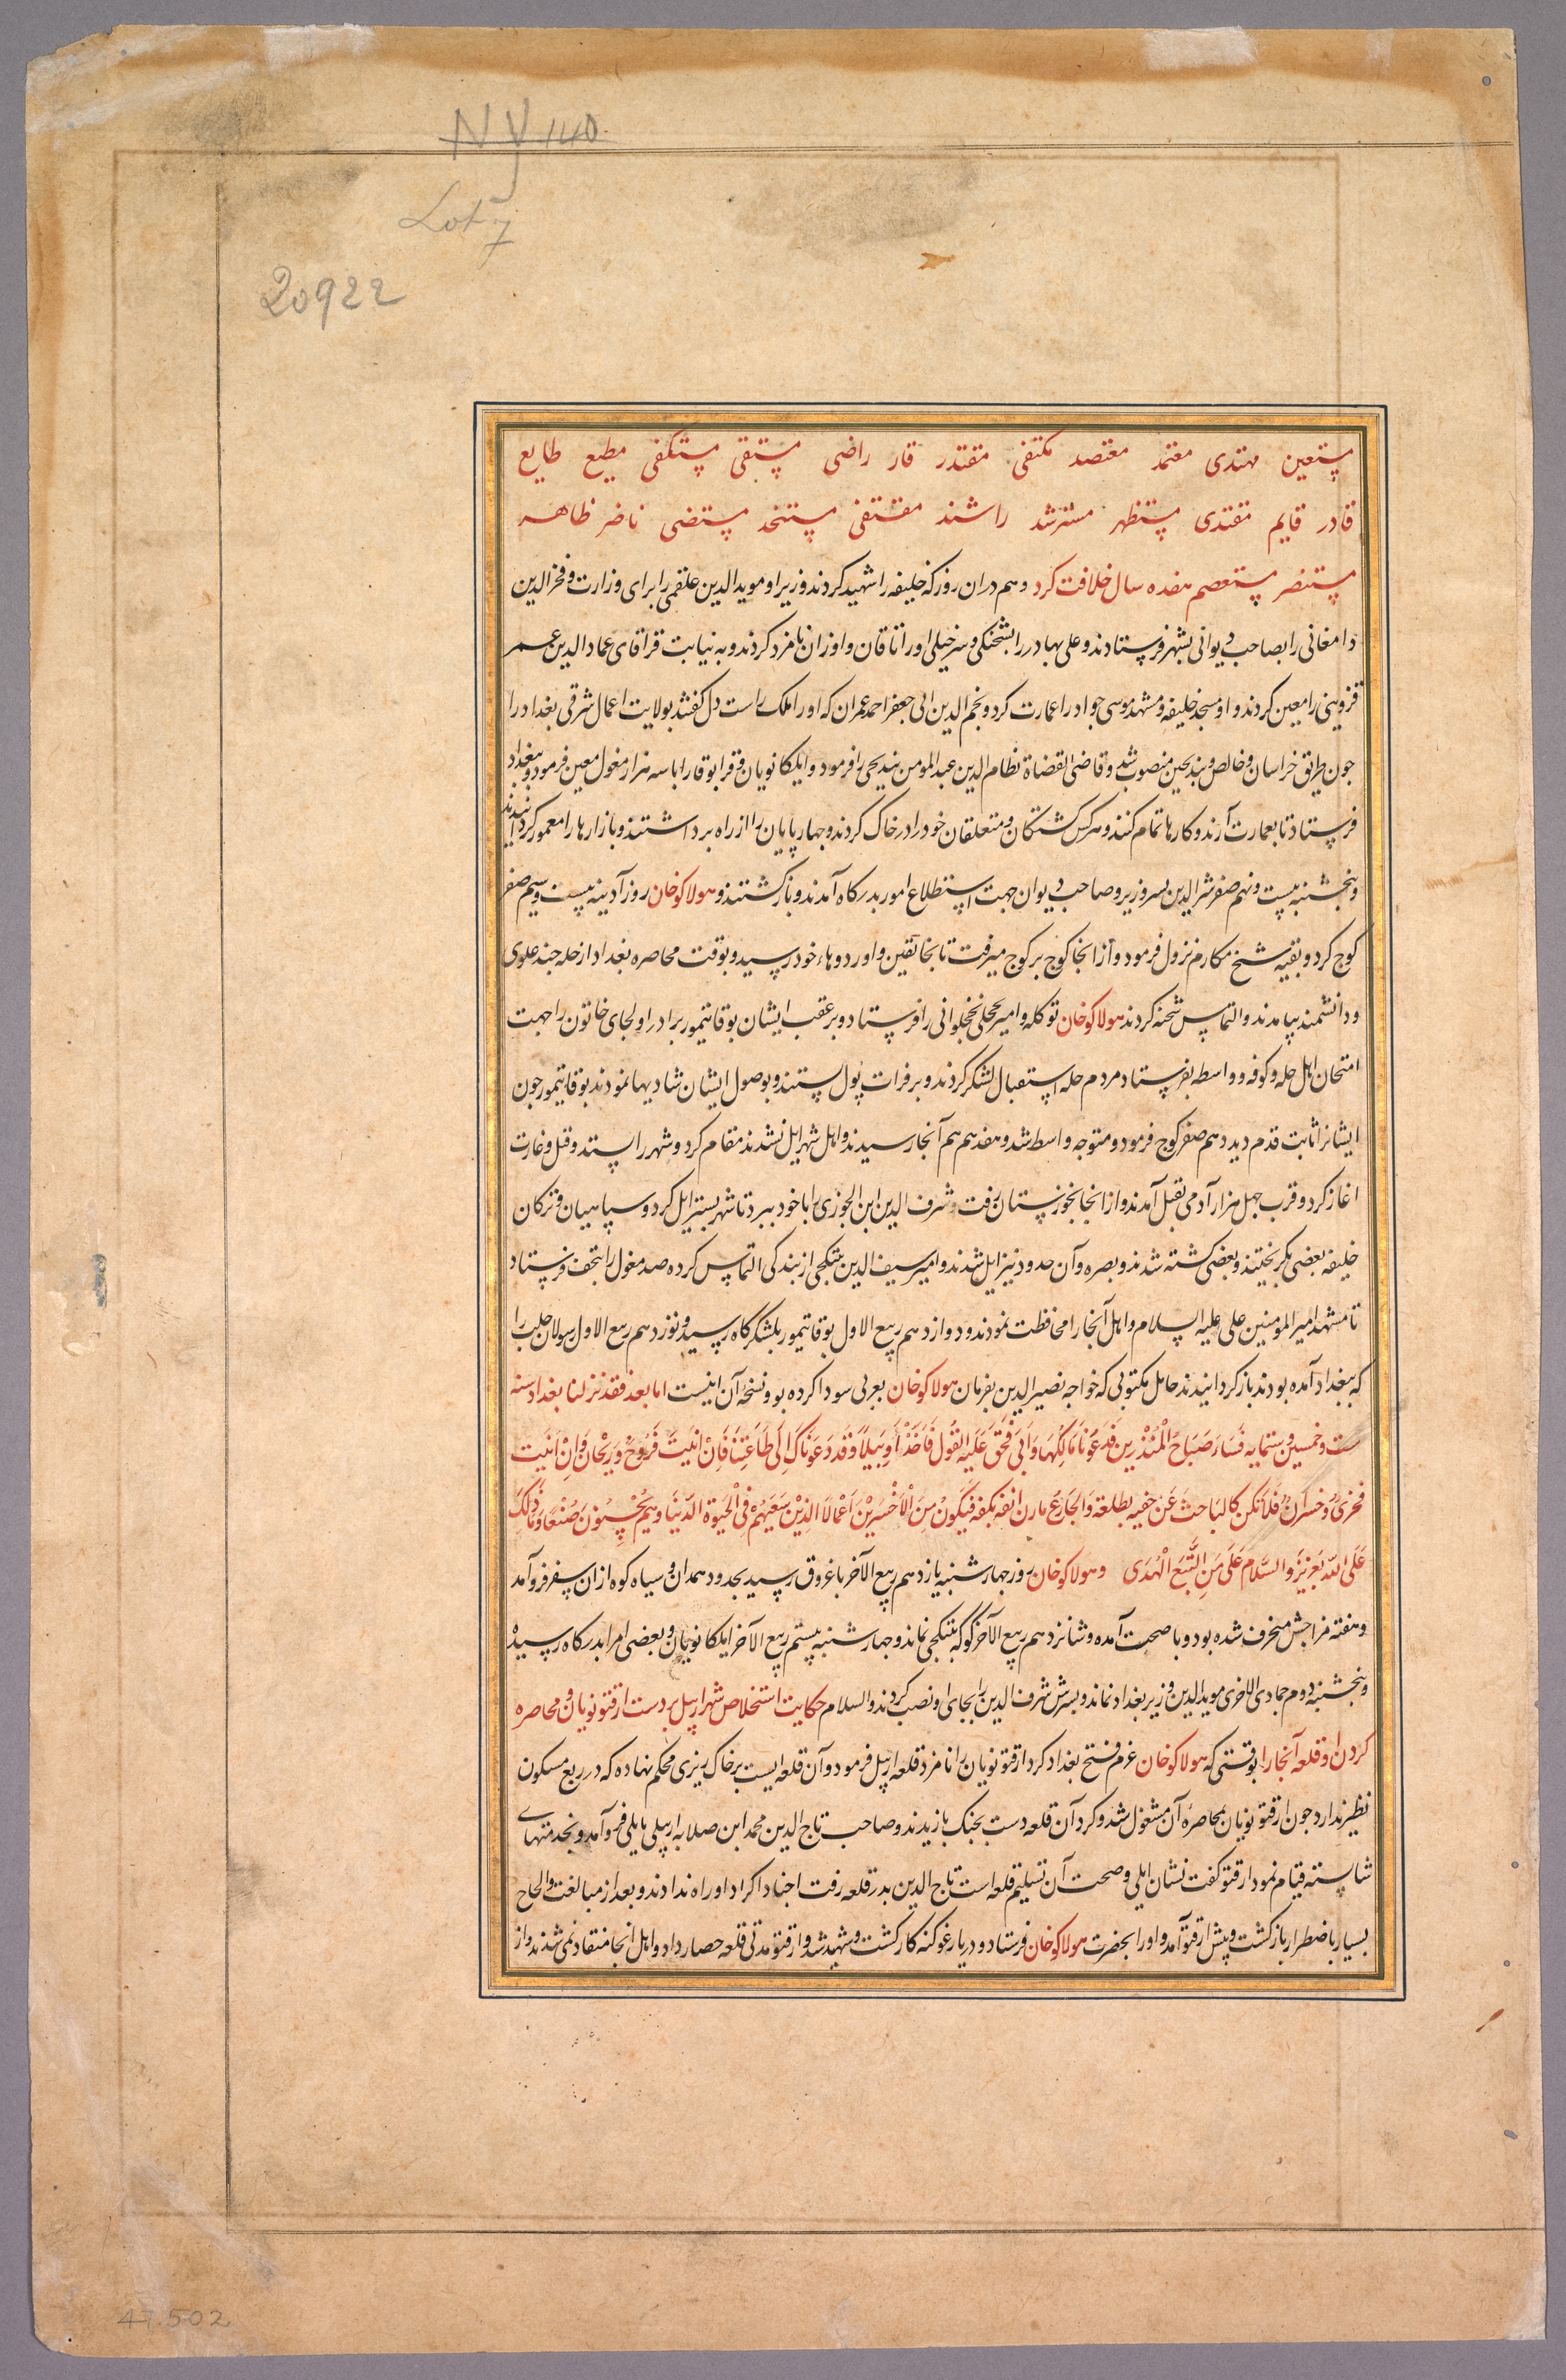 NY 140
Lot 7
20922
مستعین مهتدی معتمد معتضد مکتفی مقتدر قادر راضی متقی مستکفی مطیع طایع
قادر قایم مقتدی مستظهر مسترشد راشد مقتفی مستنجد مستضی ناصر ظاهر
مستنصر مستعصم هفده سال خلافت کرد و هم دران روز که خلیفه را شهید کردند وزیر او موید الدین علقمی را برای وزارت و فخر الدین
دامغانی را بصاحب دیوانی بشهر فرستادند و علی بهادر را بشحنکی و سرخیلی اورتاقان و اوزان نامزد کردند و به نیابت قراقای عماد الدین عمر
قزوینی را معین کردند و او مسجد خلیفه و مشهد موسی جواد را عمارت کرد و نجم الدین ابی جعفر احمد عمران که او را ملک راست دل کفتند بولایت اعمال شرقی بغداد را
جون طریق خراسان و خالص و بندنیجین منصوب شد و قاضی القضاة نظام الدین عبد المومن بندنیجی را فرمود و ایلکا نویان و قرابوقا را با سه هزار مغول معین فرمود و ببغداد
فرستاد تا بعمارت آرند و کارها تمام کنند و هر کس کشتکان و متعلقان خود را در خاک کردند و جهار پایان را از راه برداشتند و بازارها را معمور کردانیدند
و پنجشنبه بیست و نهم صفر شرف الدین پسر وزیر و صاحب دیوان جهت استطلاع امور بدرکاه آمدند و بازکشتند و هولاکو خان روز آدینه بیست و سیم صفر
کوج کرد و بقبه شیخ مکارم نزول فرمود و از انجا کوج بر کوج میرفت تا بخانقین و اوردوهاء خود رسید و بوقت محاصره بغداد از حله جند علوی
و دانشمند بیامدند و التماس شحنه کردند هولاکو خان توکله و امیر بجلی نخجوانی را فرستاد و بر عقب ایشان بوقاتیمور برادر اولجای خاتون را جهت
امتحان اهل حله و کوفه و واسطه بفرستاد مردم حله استقبال لشکر کردند و بر فرات پول بستند و بوصول ایشان شادیها نمودند بوقاتیمور جون
ایشانرا ثابت قدم دید دهم صفر کوج فرمود و متوجه واسط شد و هفدهم هم آنجا رسیدند و اهل شهر ایل نشدند مقام کرد و شهر را بستد و قتل و غارت
اغاز کرد و قرب جهل هزار آدمی بقتل آمدند و از انجا بخوزستان رفت و شرف الدین ابن الجوزی را با خود ببرد تا شهر بستر ایل کرد و سپاهیان و ترکان
خلیفه بعضی بکریختند و بعضی کشته شدند و بصره و آن حدود نیز ایل شدند و امیر سیف الدین بتکجی از بندکی التماس کرده صد مغول را بنجف فرستاد
تا مشهد امیر المومنین علی علیه السلام و اهل آنجا را محافظت نمودند و دوازدهم ربیع الاول بوقاتیمور بلشکرکاه رسید و نوزدهم ربیع الاول رسولان حلب را
که ببغداد آمده بودند بازکردانیدند حامل مکتوبی که خواجه نصیر الدین بفرمان هولاکو خان بعربی سودا کرده بود و نسخهٔ آن اینست اما بعد فقد نزلنا بغداد سنه
ست و خمسین و ستمایه فَسَاءَ صَبَاحُ الْمُنْذَرِین فَدَعَوْنَا مَالِکَهَا وَ اَبی فَحَقَّ عَلَیْهِ القَول فَاَخَذْنَا وَبِیلاً وَقَد دَعَوْنَاکَ اِلَی طَاعَتِنَا فَاِنْ اتَیتَ فَرَوْحٌ وَ رَیْحَان وَ اِنْ اَبَیت
فخزیٌ و خسران فلاتکن کالباحث عَن حتفه بظلفه وَ الجادع مارن انفه بکفه فتکون مِنَ الاَخْسَرِیْنَ اَعْمالاً الَّذِیْنَ سَعْیُهُمْ فی الْحَیٰوةِ الدُّنْیَا وَهُمْ یَحْسِبُوْنَ صُنْعًا وَ مَا ذٰلِکَ
عَلَی اللّه بِعَزِیْز وَالسَّلام عَلَی مَنِ اتَّبَعَ الْهُدَی و هولاکو خان روز جهارشنبه یازدهم ربیع الآخر باغروق رسید بحدود همدان و سیاه کوه از ان سفر فرو آمد
و هفته مزاجش منحرف شده بود و با صحت آمده و شانزدهم ربیع الآخر کوکه بتکجی نماند و جهارشنبه بیستم ربیع الآخر ایلکا نویان و بعضی امرا بدرکاه رسید
و پنجشنبه دوم جمادی الاخری موید الدین وزیر بغداد نماند و پسرش شرف الدین را بجای او نصب کردند و السلام حکایت استخلاص شهر اربیل بر دست ارقتو نویان و محاصره
کردن او قلعه آنجا را بوقتی که هولاکو خان عزم فتح بغداد کرد ارقتو نویان را نامزد قلعه اربیل فرمود و آن قلعه ایست بر خاک ریزی محکم نهاده که در ربع مسکون
نظیر ندارد جون ارقتو نویان بمحاصرهٔ آن مشغول شد و کرد آن قلعه دست بجنک یازیدند و صاحب تاج الدین محمد ابن صلابه اربیلی بایلی فرو آمد و بخدمتهای
شایسته قیام نمود ارقتو کفت نشان ایلی و صحت آن تسلیم قلعه است تاج الدین بدر قلعه رفت اجناد اکراد او راه ندادند و بعد از مبالغت و الحاح
بسیار باضطرار بازکشت و پیش ارقتو آمد و او را بحضرت هولاکو خان فرستاد و در یارغو کنه کار کشت و شهید شد و ارقتو مدتی قلعه حصار داد و اهل انجا منقاد نمی شدند و از
47.502